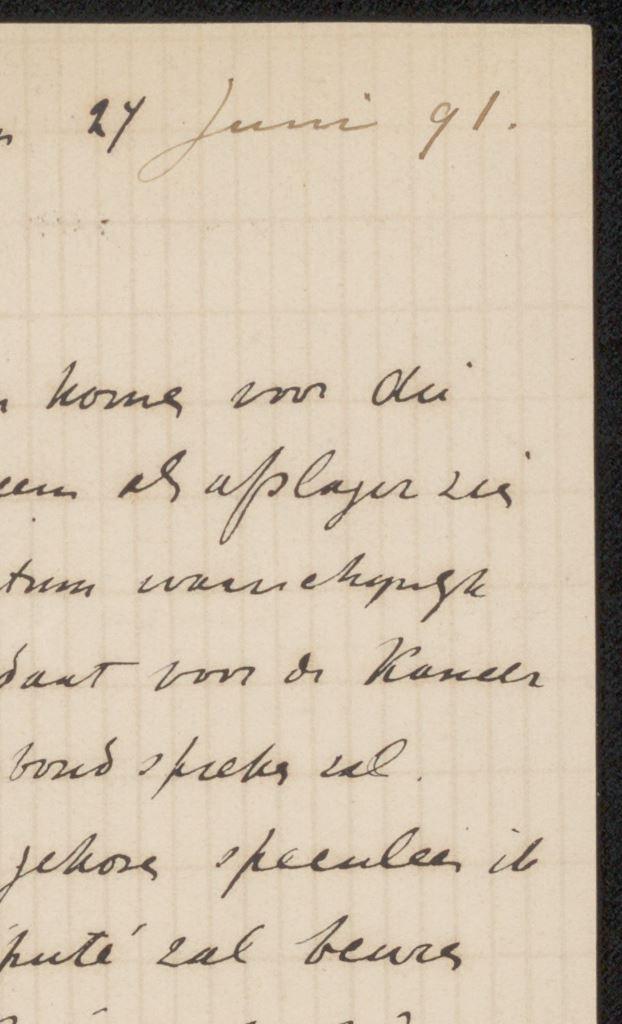 27 Juni 91.
komen voor die
als afslager zie
waarschijnlijk
voor de Kamer
bond spreken zal.
gekozen speculeer ik
puté zal beuren